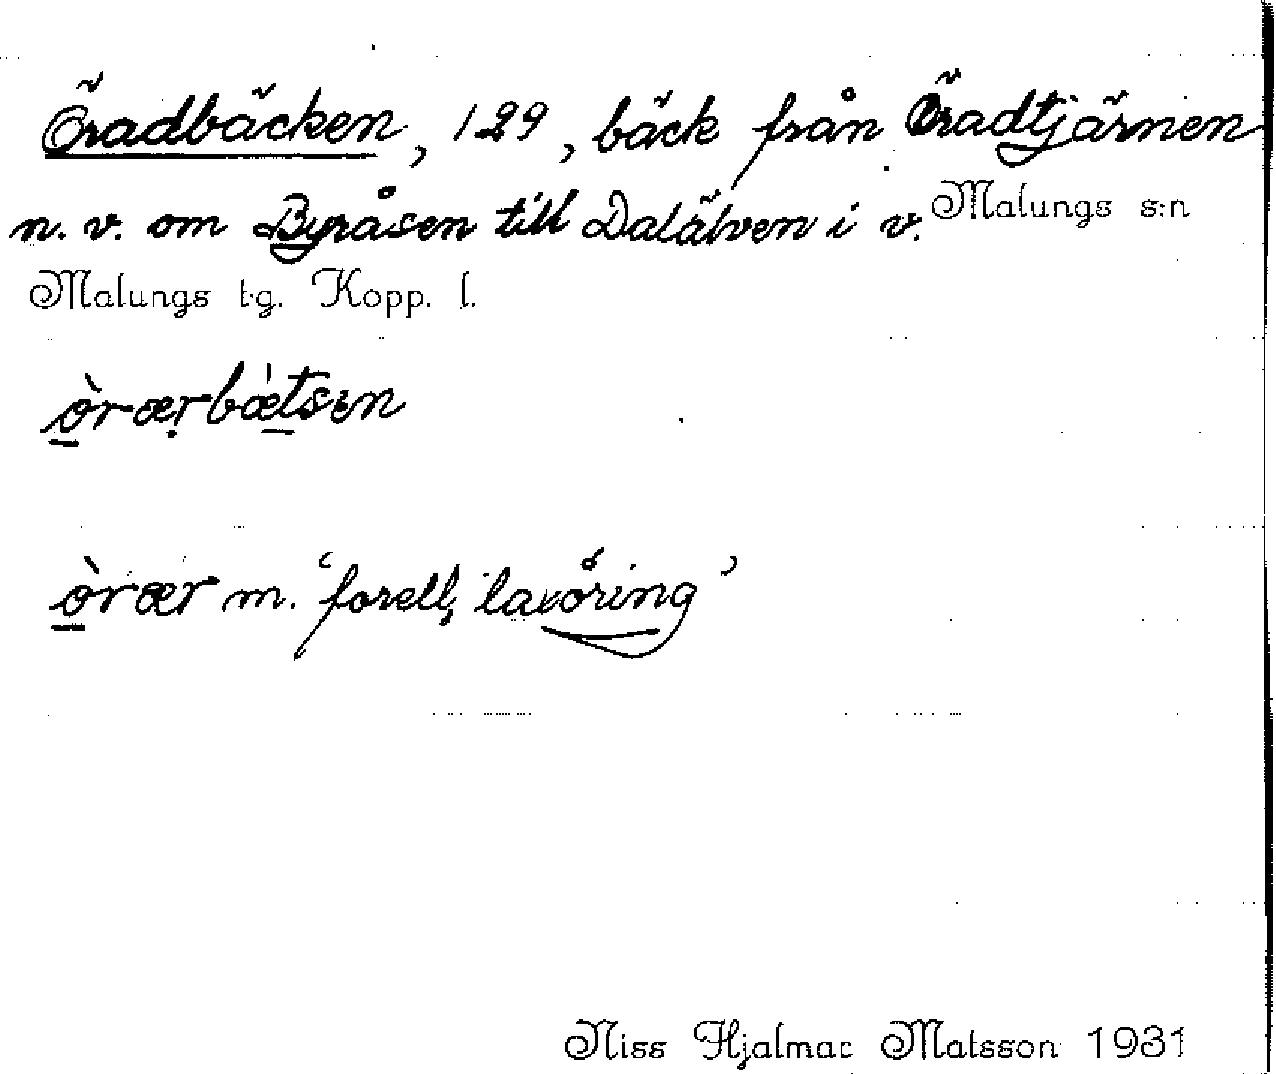 Öradbäcken, 129, bäck från Öradtjärnen
n. v. om Byråsen till Dalälven i v. Malungs s:n
Malungs tg. Kopp. l.
òrærbætsen
òrær m. 'forell, laxöring'
Niss Hjalmar Matsson 1931